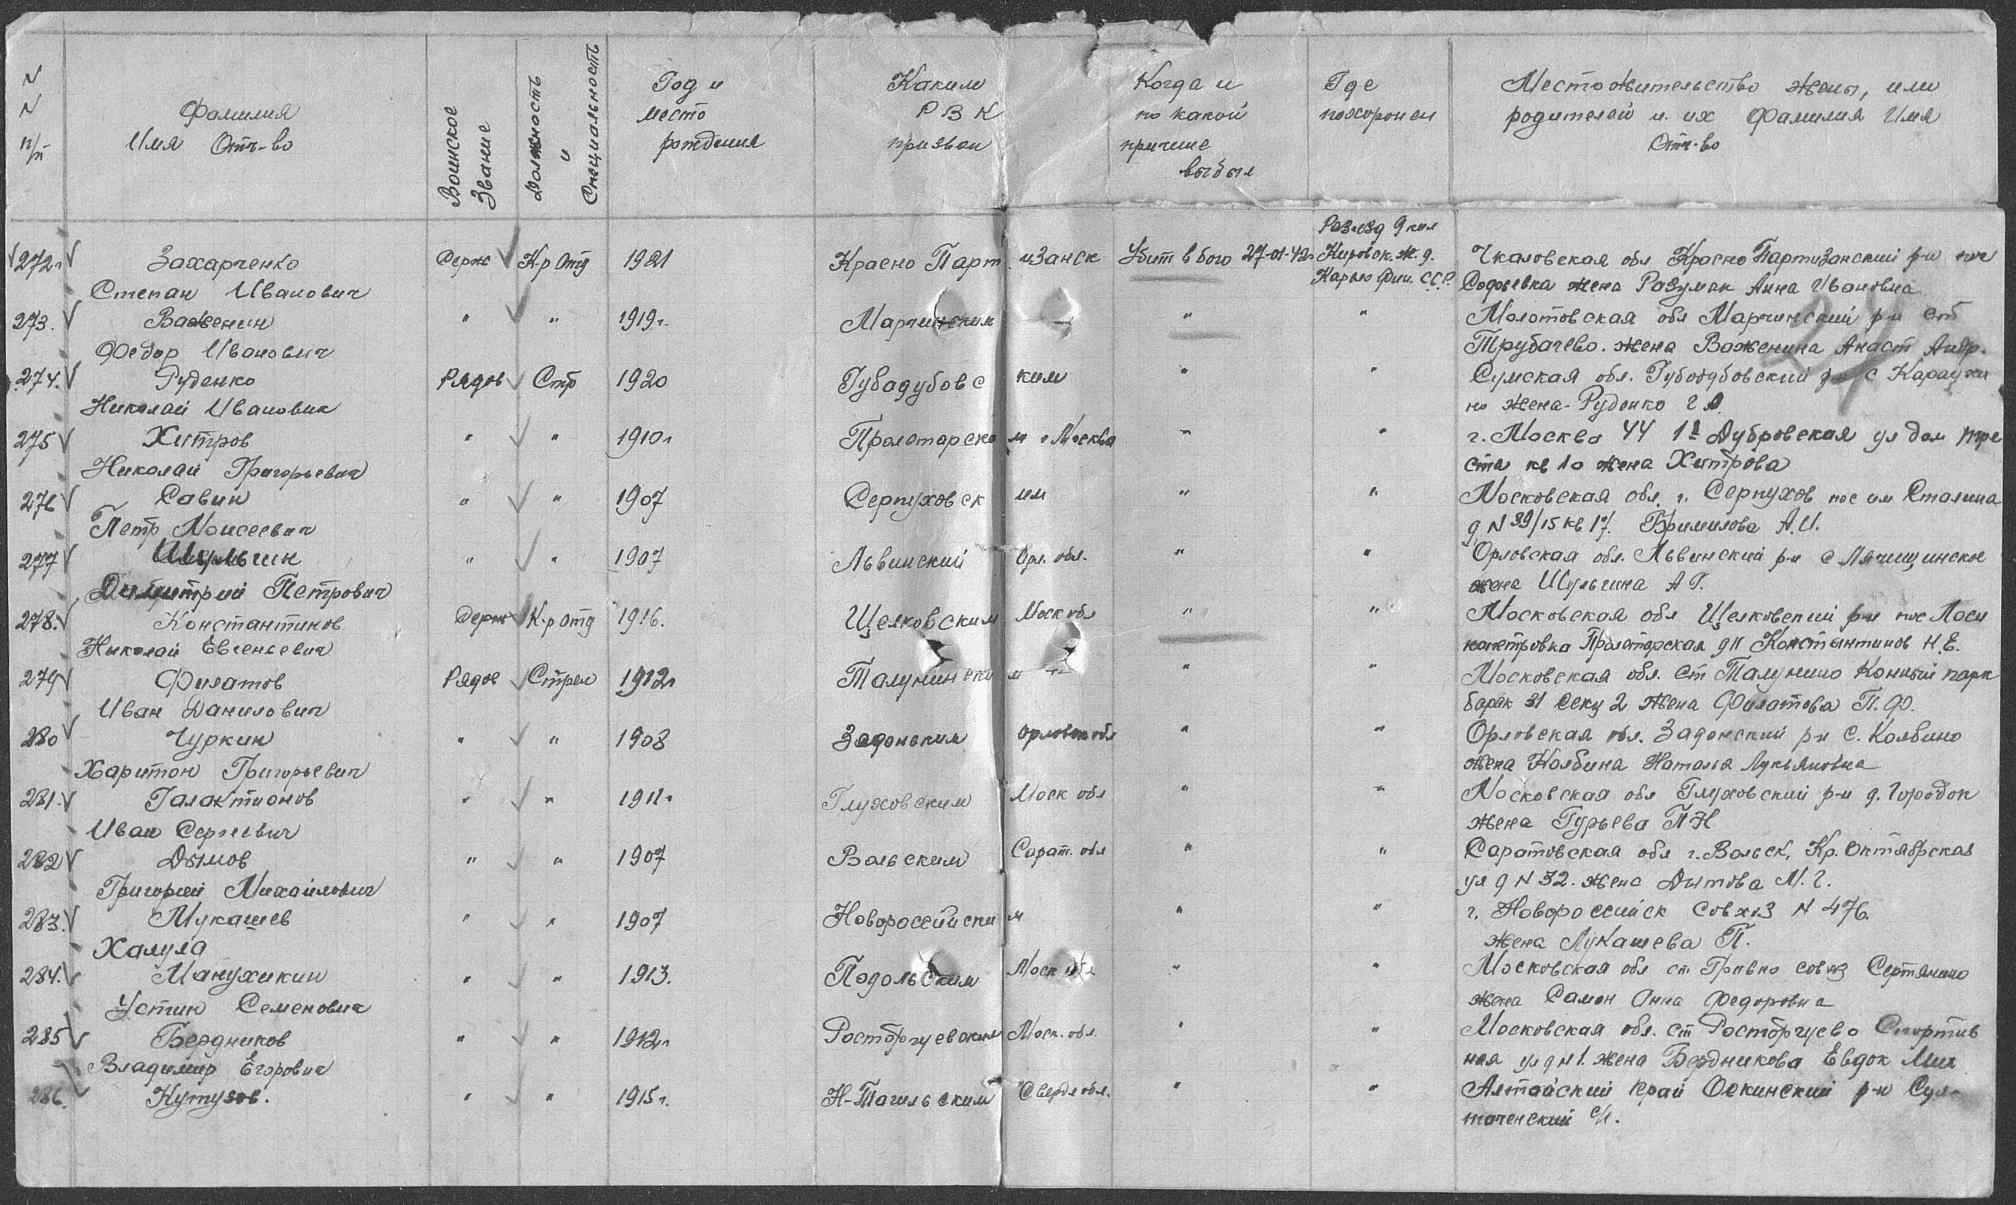 N N п/п
Фамилия Имя Отч-во
Воинское Звание
Должность и Специальность
Год и место рождения
Каким РВК призван
Когда и по какой причине выбыл
Где похоронен
Место жительство жены, или родителей и их Фамилия Имя Отч-во
Разъезд 9 км
272. Захарченко Серж Кр Отд 1921 Красно Партизанск Убит в бою 27-01-42г Кировск. ж.д. Чкаловская обл Красно Партизанский р-н пос
Степан Иванович Карело Фин. С.С.Р. жена Разумак Анна Ивановна
273. Важенин " " 1919г. " " Молотовская обл р-н
Федор Иванович Трубачево. жена Важенина Анаст Андр.
274. Руденко Рядов Стр 1920 Губадубовским " " Сумская обл. р-н с
Николай Иванович но жена-Руденко
275 Хитров " " 1910г Пролетарским г Москва " " г. Москва 44 1я Дубровская ул дом тре
Николай Григорьевич ста кв 10 жена Хитрова
276 Савин " " 1907 Серпуховским " " Московская обл. г. Серпухов пос им Сталина
Петр Моисеевич д N 39/15 кв 17. А.И.
277 Шульгин " " 1907 Львинский Орл. обл. " " Орловская обл. Львинский р-н с
Димитрий Петрович жена Шульгина А Г.
278. Константинов Серж К-р отд 1916. Щелковским Моск обл " " Московская обл Щелковский р-н пос Лоси
Николай Евгеньевич нопетровка Пролетарская д11 Константинов Н.Е.
279 Филатов Рядов Стрел 1912г Талунинским " " Московская обл. ст Талунино Конный парк
Иван Данилович барак 31 секц 2 жена Филатова П.Ф.
280 Чуркин " " 1908 Задонским Орловск обл " " Орловская обл. Задонский р-н с. Колбино
Харитон Григорьевич жена Колбина Наталья Лукьяновна
281. Галактионов " " 1911г Глуховским Моск обл " " Московская обл Глуховский р-н д. Городок
Иван Сергеевич жена Гурьева П Н
282 Дымов " " 1907 Вольским Сарат. обл " " Саратовская обл г. Вольск, Кр. Октябрская
Григорий Михайлович ул д N 32. жена Дымова М. Г.
283. Мукашев " " 1907 Новороссийским " " г. Новороссийск Совхоз N 476.
Халула жена Лукашева П.
284. Манухикин " " 1913. Подольским Моск обл " " Московская обл ст Гривно совхоз
Устин Семенович жена Самон Анна Федоровна
285 Бердников " " 1912г Расторгуевским Моск. обл. " " Московская обл. ст Расторгуево Спортив
Владимир Егорович ная ул д N 1. жена Бердникова Евдок Мих
286. Кутузов. " " 1915г. Н-Тагильским Свердл обл. " " Алтайский край р-н Сул-
с/с.